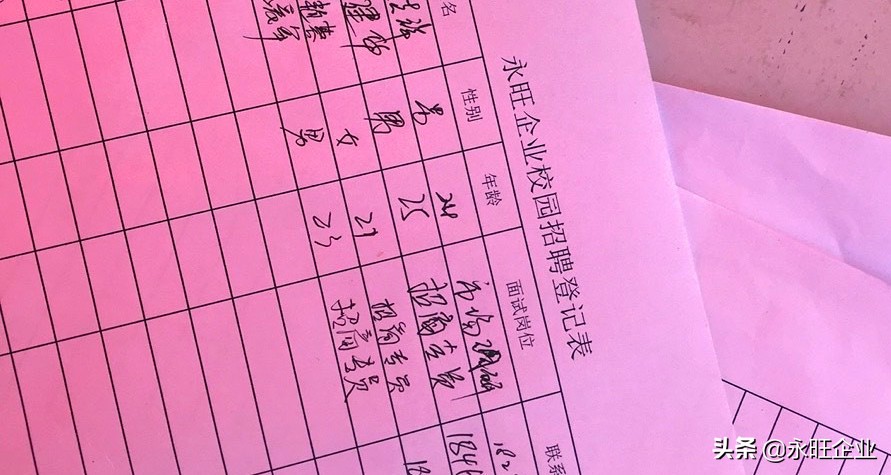 永旺企业校园招聘登记表
名 性别 年龄 面试岗位 联系
男 24 市场调研 182
男 25 招商专员 184
女 27 招商专员
男 23 招商专员
头条 @永旺企业